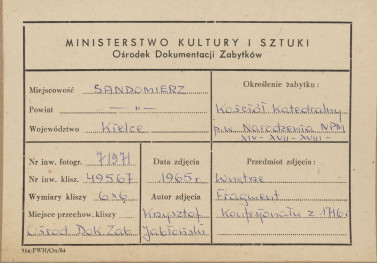 MINISTERSTWO KULTURY I SZTUKI
Ośrodek Dokumentacji Zabytków
Miejscowość SANDOMIERZ
Powiat — „ —
Województwo Kielce
Określenie zabytku:
Kościół Katedralny
p.w. Narodzenia NPM
XIV - XVII - XVIII -
Nr inw. fotogr. 7197/
Nr inw. klisz. 49567
Wymiary kliszy 6x6
Miejsce przechow. kliszy
Ośrod. Dok. Zab.
Data zdjęcia
1965 r.
Autor zdjęcia
Krzysztof
Jabłoński
Przedmiot zdjęcia:
Wnętrze
Fragment
Konfesjonału z 1716 r.
314/PWH/On/64